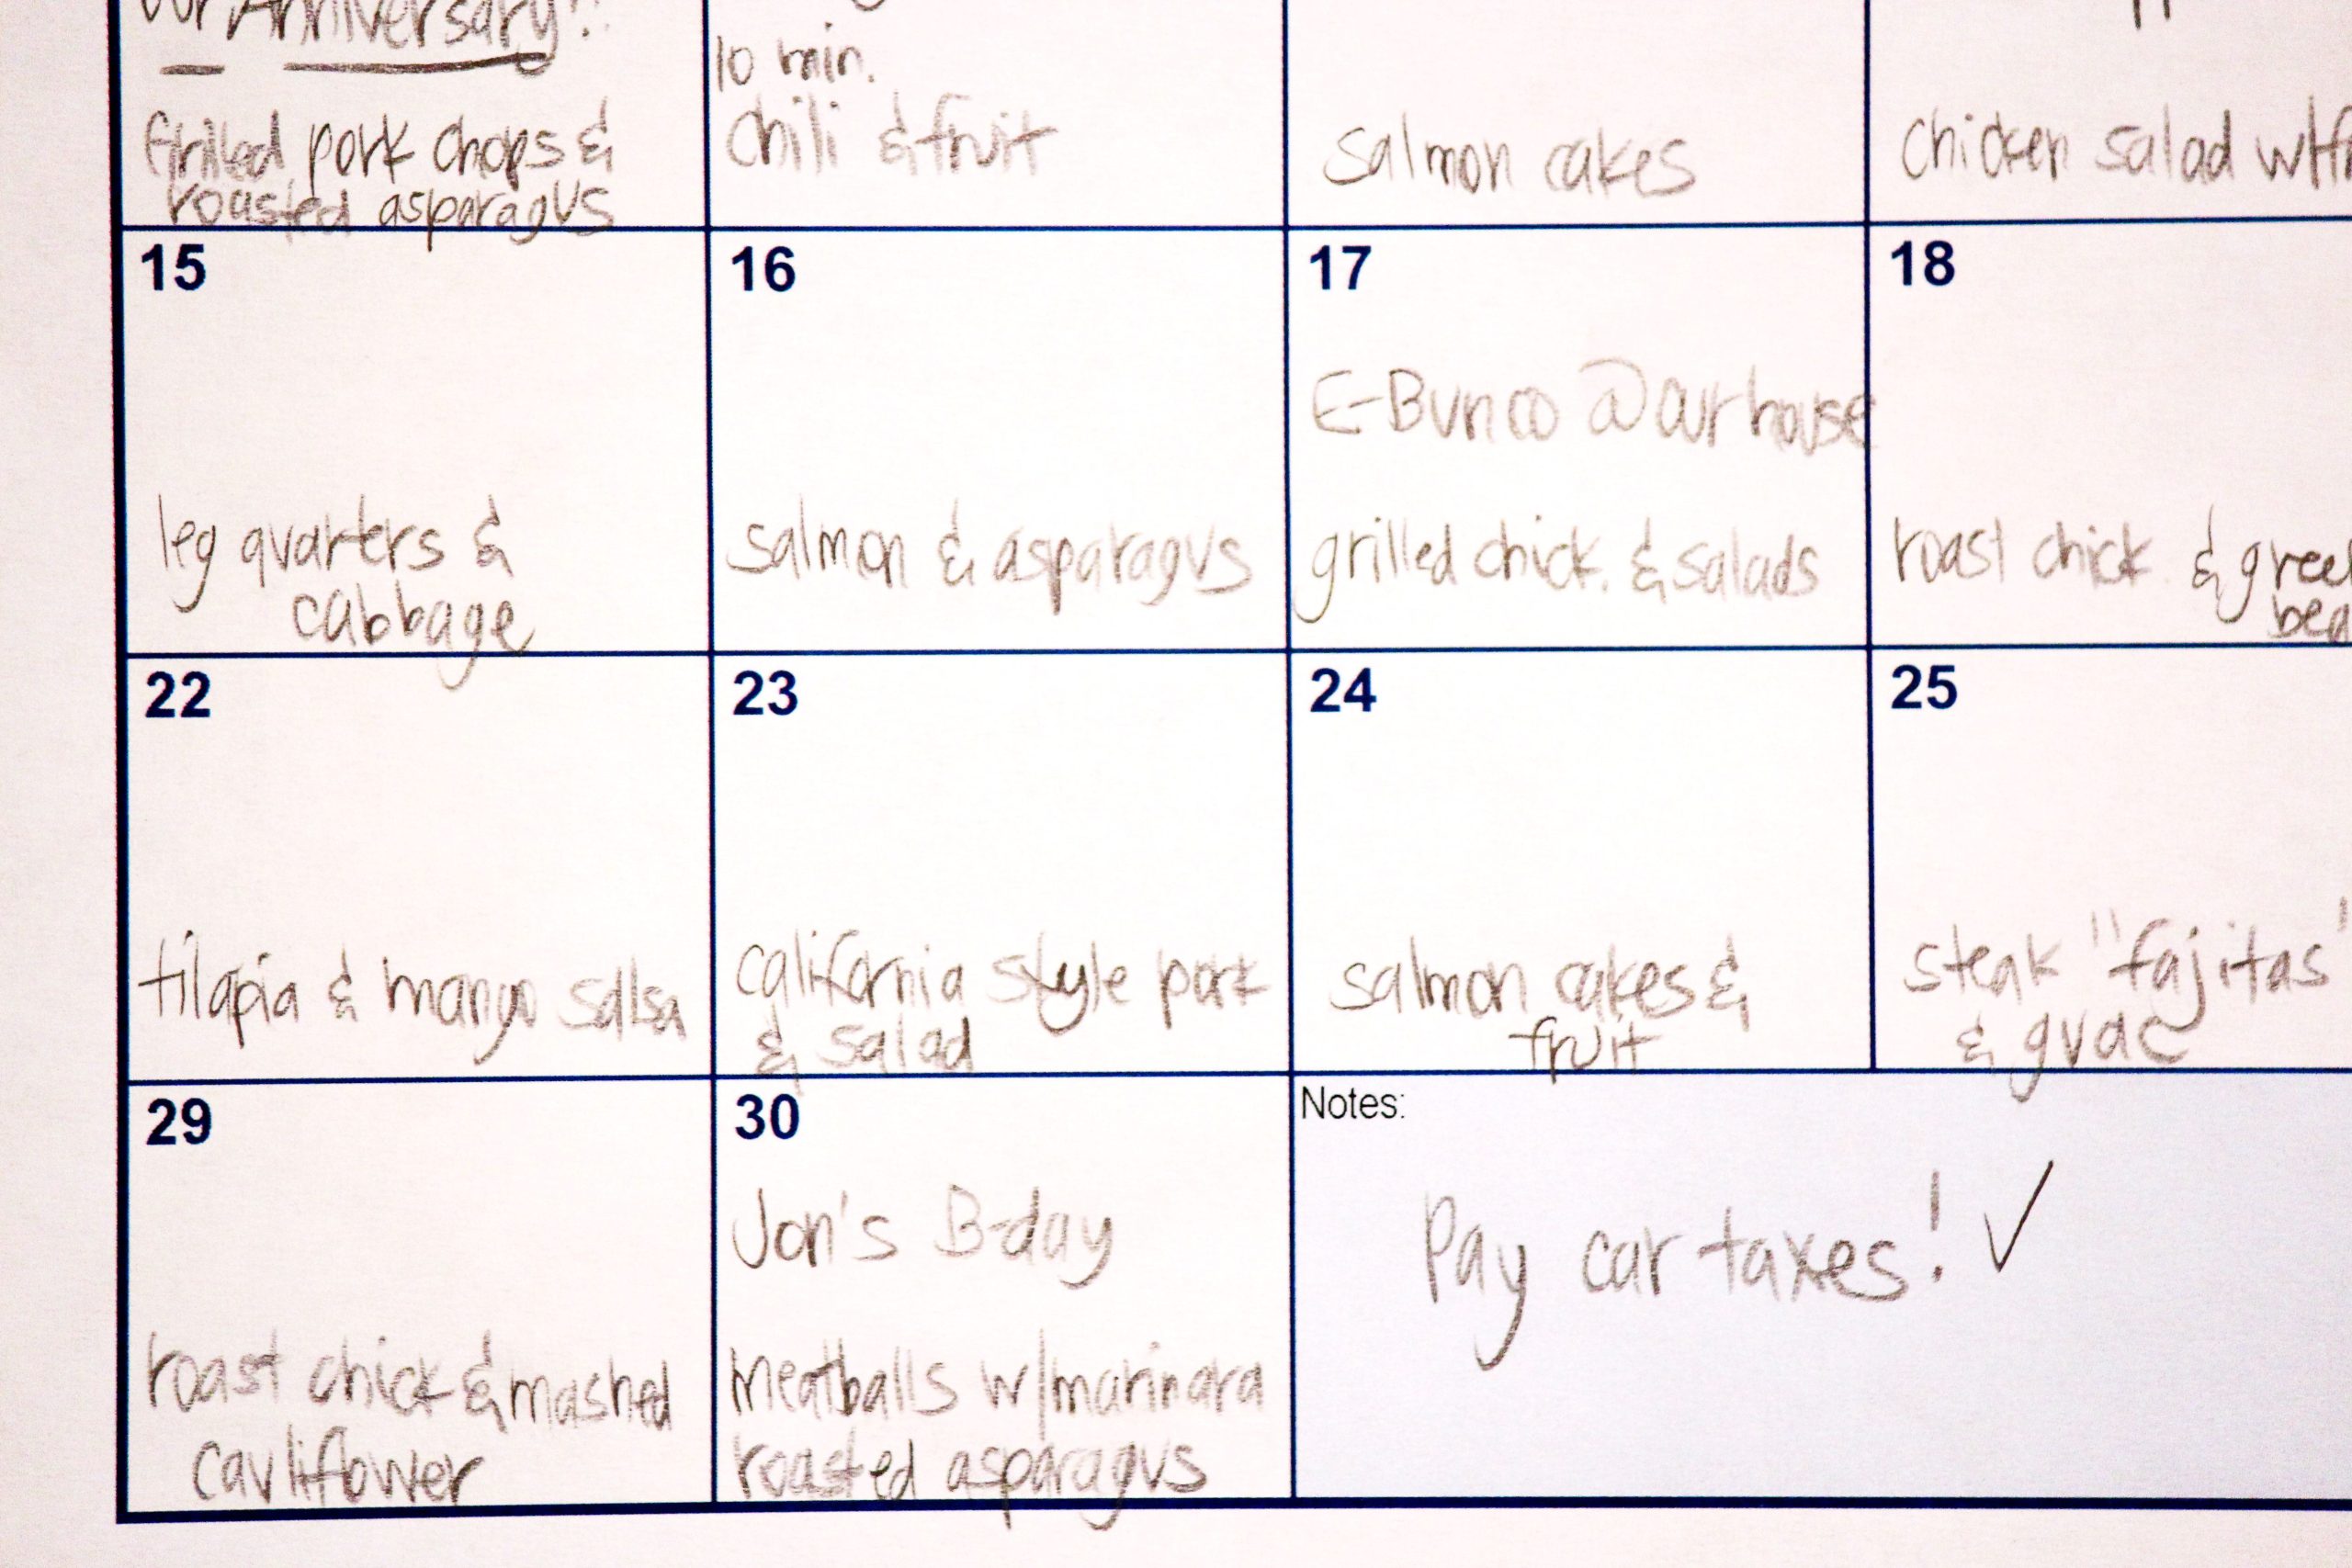 our Anniversary!!
Grilled pork chops &
roasted asparagus
10 min.
Chili & fruit
salmon cakes
chicken salad
15
leg quarters &
cabbage
16
salmon & asparagus
17
E-Bunco @ our house
grilled chick. & salads
18
roast chick &
22
tilapia & mango salsa
23
california style pork
& salad
24
salmon cakes &
fruit
25
steak "fajitas"
& guac
29
roast chick & mashed
cauliflower
30
Jon's B-day
meatballs w/marinara
roasted asparagus
Notes:
Pay car taxes! ✓